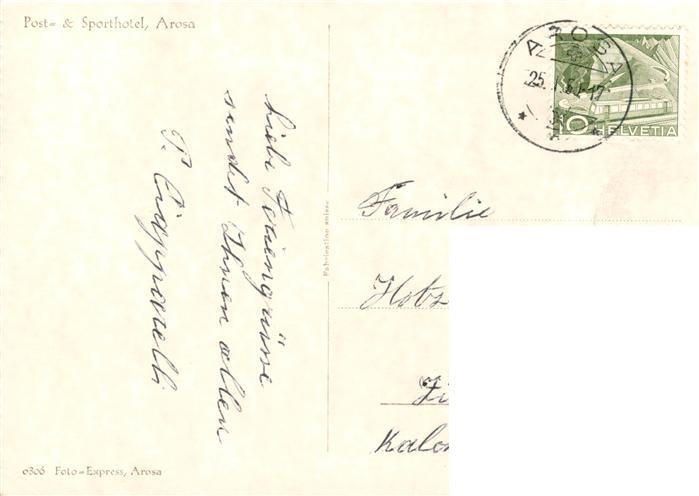 Post= & Sporthotel, Arosa
Liebe Feriengrüsse
sendet Ihnen allen
P.
Fabrication suisse
AROSA
25.
10 HELVETIA
Familie
Hotz
0306 Foto=Express, Arosa